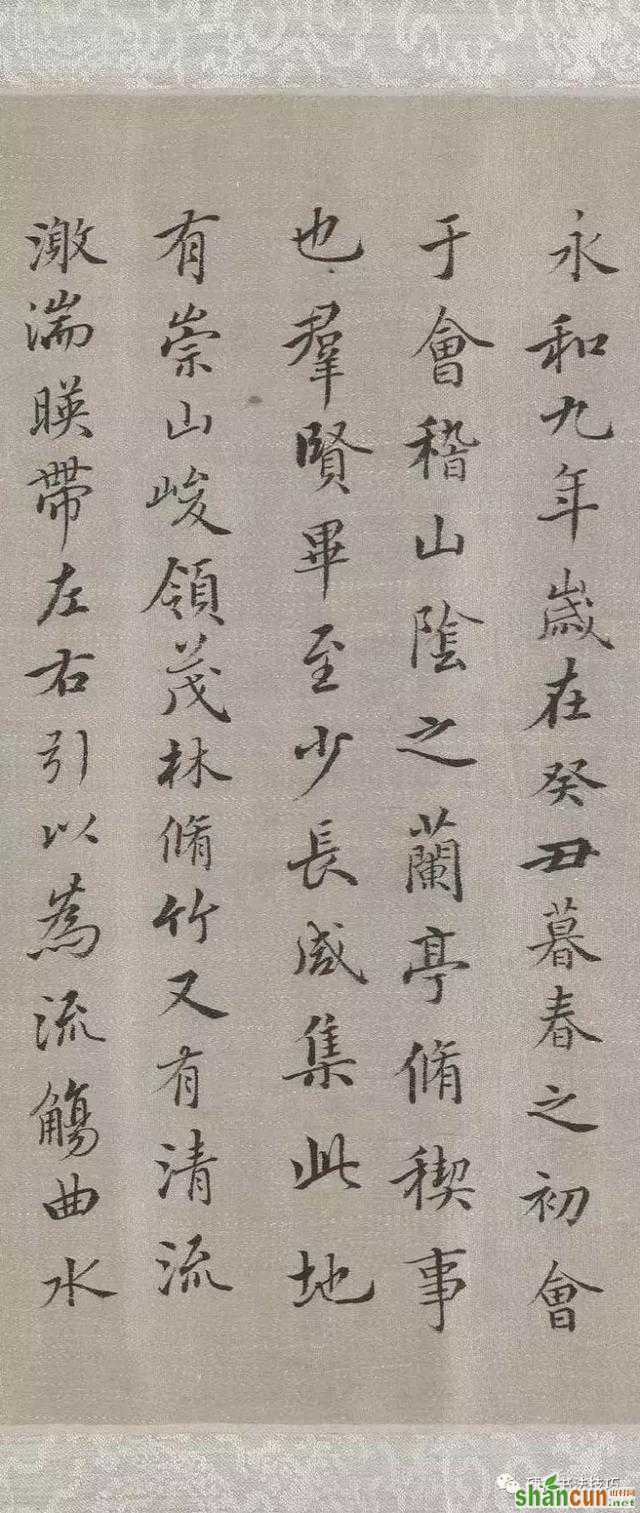 永和九年歲在癸丑暮春之初會
于會稽山陰之蘭亭脩稧事
也羣賢畢至少長咸集此地
有崇山峻領茂林脩竹又有清流
激湍暎帶左右引以為流觴曲水
书法技巧
shancun
山村网
.net